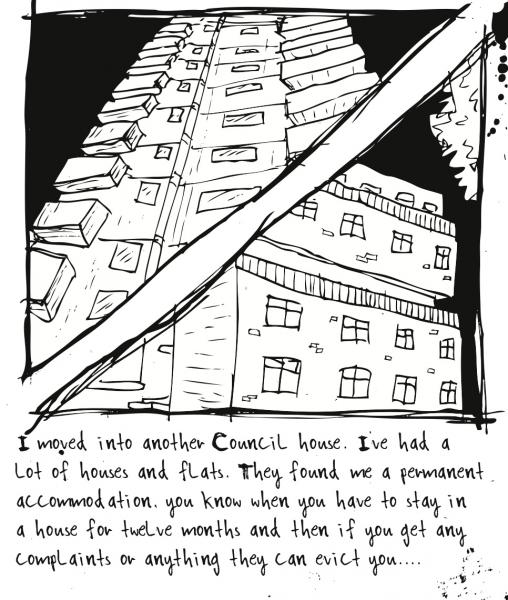 I moved into another Council house. I've had a
Lot of houses and flats. They found me a permanent
accommodation. you know when you have to stay in
a house for twelve months and then if you get any
complaints or anything they can evict you....